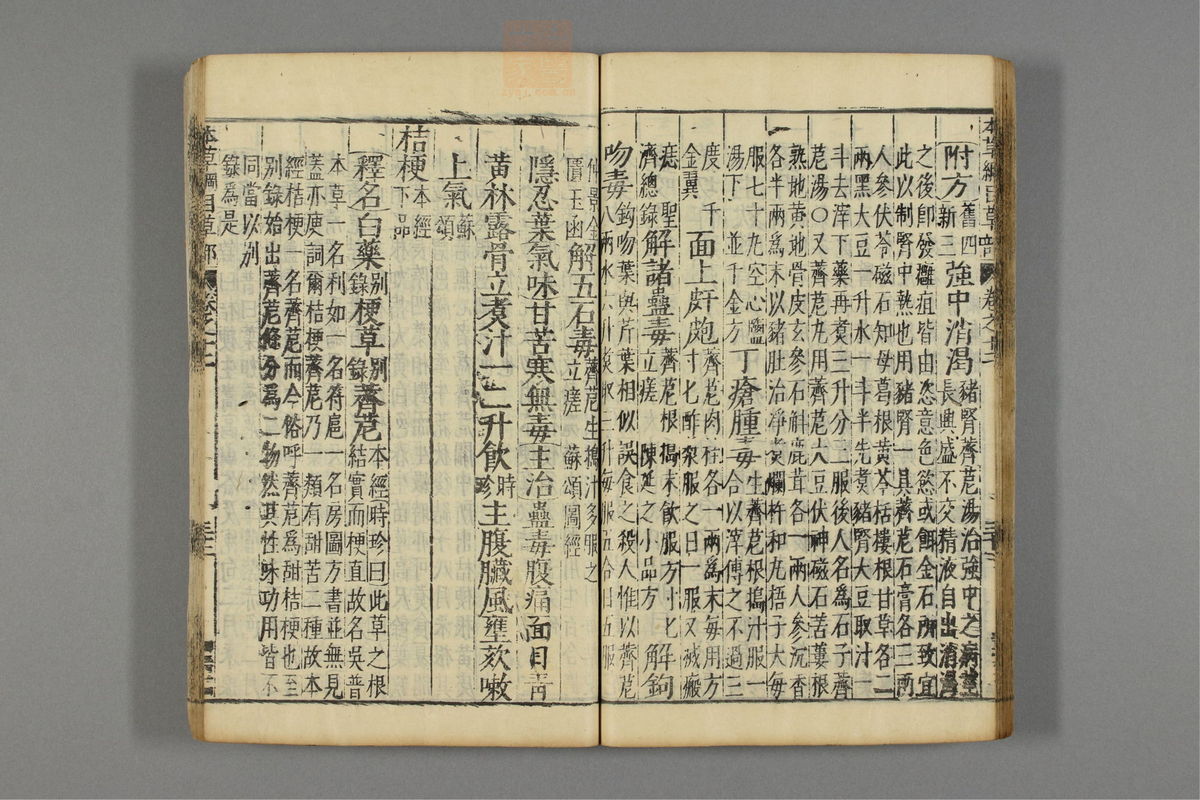 本草綱目草部 卷之十二
附方舊四新三強中消渴豬腎薺苨湯治強中之病莖長興盛不交精液自出消渴
之後即發癰疽皆由恣意色慾或餌金石所致宜
此以制腎中熱也用豬腎一具薺苨石膏各三兩
人參茯苓磁石知母葛根黃芩栝樓根甘草各二
兩黑大豆一升水一斗半先煮豬腎大豆取汁一
斗去滓下藥再煮三升分三服後人名爲石子薺
苨湯○又薺苨丸用薺苨大豆伏神磁石苦蔞根
熟地黃地骨皮玄參石斛鹿茸各一兩人參沉香
各半兩爲末以豬肚治淨煮爛杵和丸梧子大每
服七十丸空心鹽湯下 並千金方丁瘡腫毒生薺苨根搗汁服一合以滓傅之不過三
度 千金翼面上皯皰薺苨肉桂各一兩爲末每用方寸匕酢漿服之日一服又滅瘢
痣 聖濟總錄解諸蠱毒薺苨根搗末飲服方寸匕立瘥 陳延之小品方解鉤
吻毒鉤吻葉與芹葉相似誤食之殺人惟以薺苨八兩水六升煮取三升每服五合日五服
仲景金匱玉函解五石毒薺苨生搗汁多服之立瘥 蘇頌圖經
隱忍葉氣味甘苦寒無毒主治蠱毒腹痛面目青
黃林露骨立煮汁一二升飲時珍主腹臟風壅欬嗽
上氣蘇頌
桔梗本經下品
釋名白藥別錄梗草別錄薺苨本經時珍曰此草之根結實而梗直故名吳普
本草一名利如一名符扈一名房圖方書並無見
蓋亦廋詞爾桔梗薺苨乃一類有甜苦二種故本
經桔梗一名薺苨而今俗呼薺苨爲甜桔梗也至
別錄始出薺苨條分爲二物然其性味功用皆不
同當以別錄爲是
本草綱目草部 卷之十二